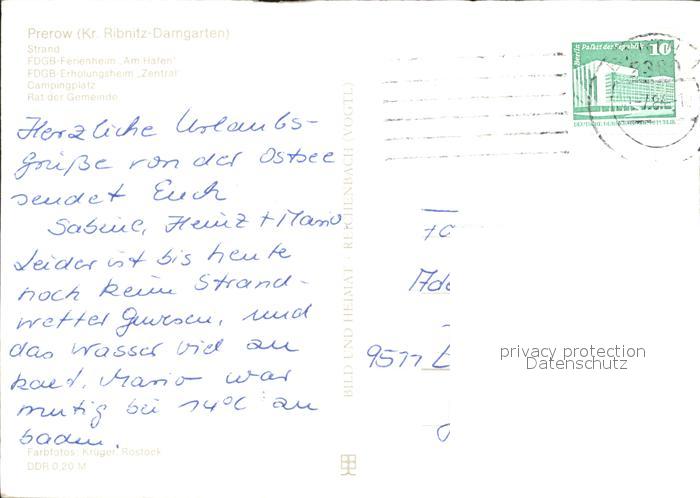 Prerow (Kr. Ribnitz-Damgarten)
Strand
FDGB-Ferienheim „Am Hafen"
FDGB-Erholungsheim „Zentral"
Campingplatz
Rat der Gemeinde
Herzliche Urlaubs-
Grüße von der Ostsee
sendet Euch
Sabine, Heinz + Mario
Leider ist bis heute
noch keine Strand-
wetter Gewesen, und
das Wasser viel zu
kalt. Mario war
mutig bei 14°C zu
baden.
Farbfotos: Krüger, Rostock
DDR 0,20 M
BILD UND HEIMAT · REICHENBACH (VOGTL)
Berlin Palast der Republik 10
9511
privacy protection
Datenschutz